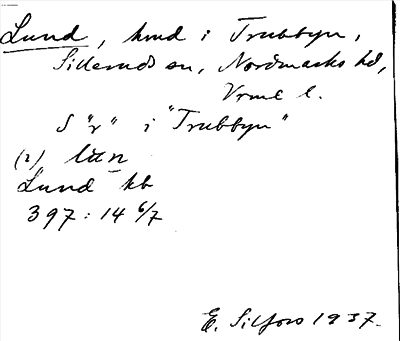 Lund, hmd i Trubbyn,
Silleruds sn, Nordmarks hd,
Vrml l.
S "r" i "Trubbyn"
(2) lŭn
Lund kb
397:14 6/7
E. Silfors 1937.